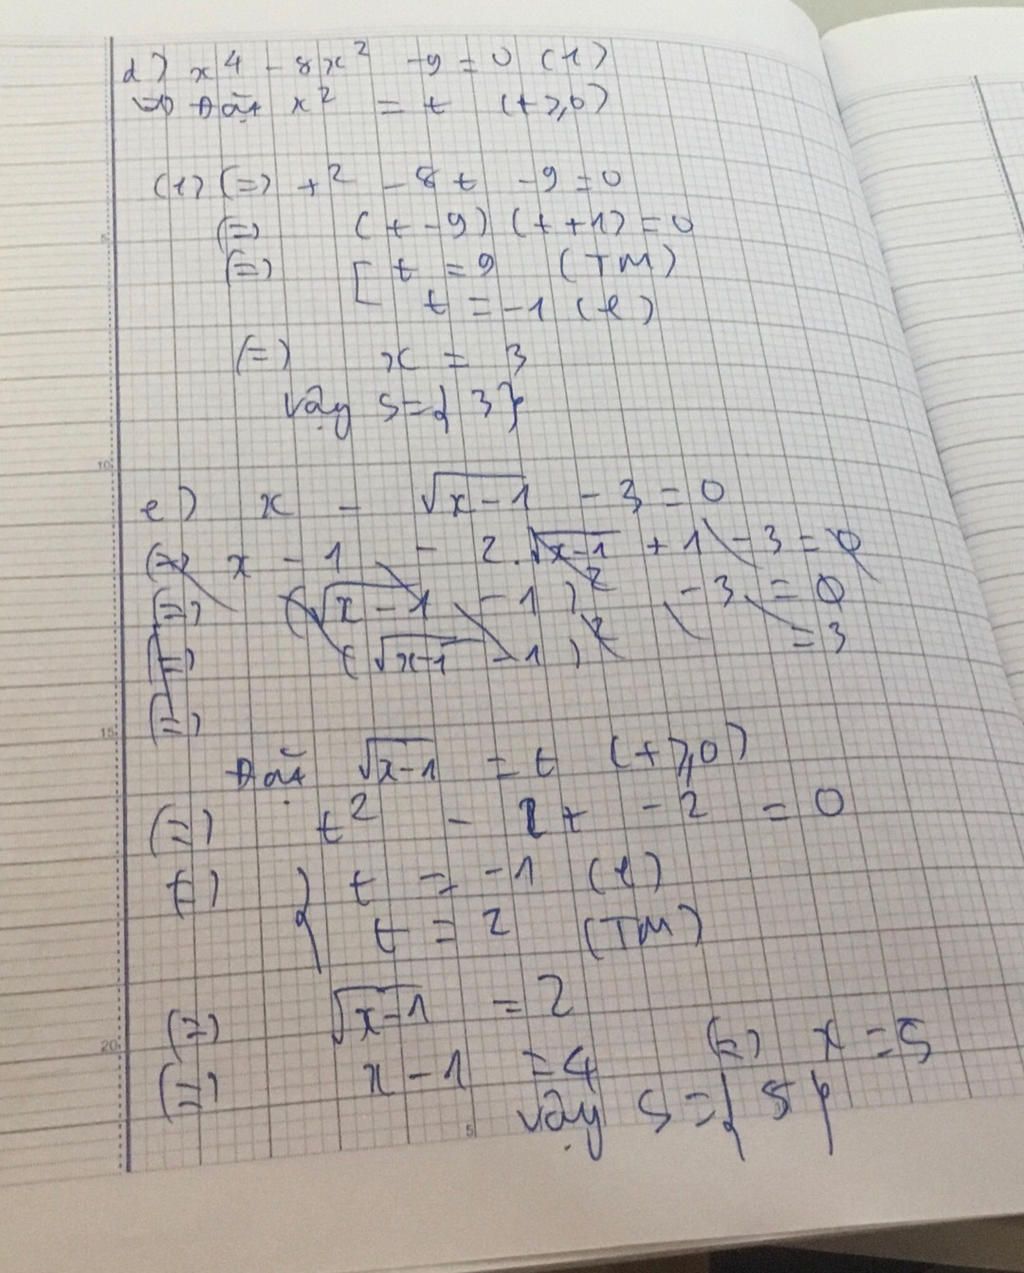 d) x⁴ - 8x² - 9 = 0 (1)
=> Đặt x² = t (t ≥ 0)
(1) (=) t² - 8t - 9 = 0
(=) (t - 9) (t + 1) = 0
(=) [ t = 9 (TM)
t = -1 (l)
(=) x = 3
Vậy S = { 3 }
e) x - √x-1 - 3 = 0
(=) x - 1 - 2.√x-1 + 1 - 3 = 0
(=) (√x-1 - 1)² - 3 = 0
(=) (√x-1 - 1)² = 3
(=)
Đặt √x-1 = t (t ≥ 0)
(=) t² - t - 2 = 0
(=) { t = -1 (l)
t = 2 (TM)
(=) √x-1 = 2
(=) x - 1 = 4 (=) x = 5
Vậy S = { 5 }